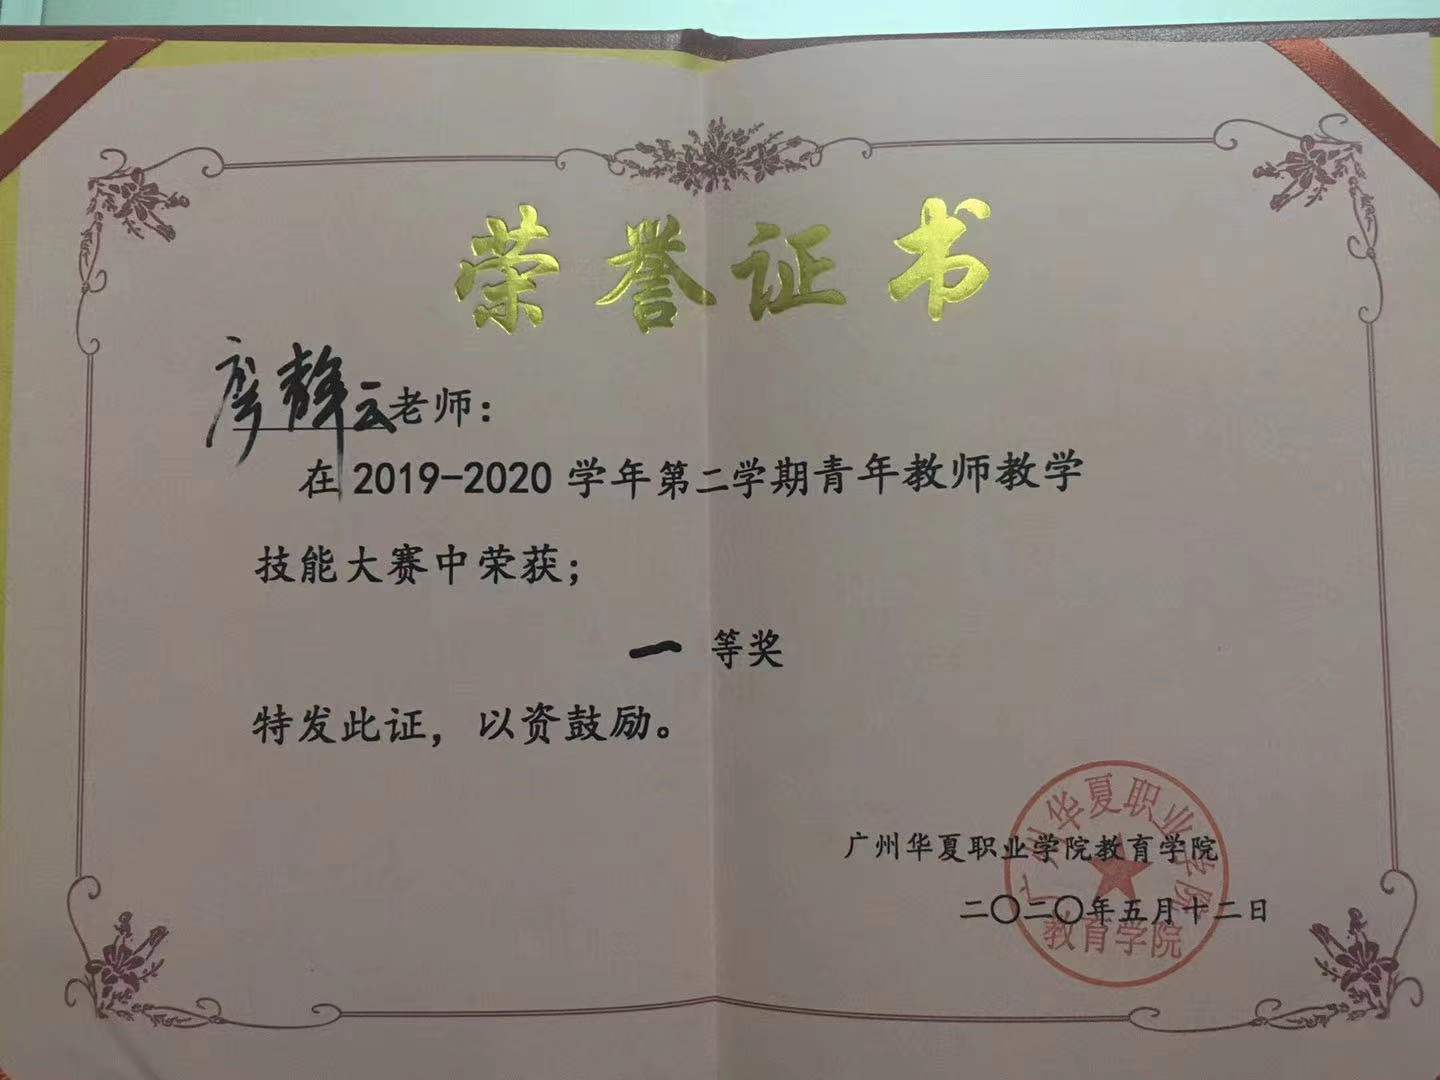 荣誉证书
廖静云老师：
在2019-2020学年第二学期青年教师教学
技能大赛中荣获；
一 等奖
特发此证，以资鼓励。
广州华夏职业学院教育学院
二〇二〇年五月十二日
广州华夏职业学院
教育学院